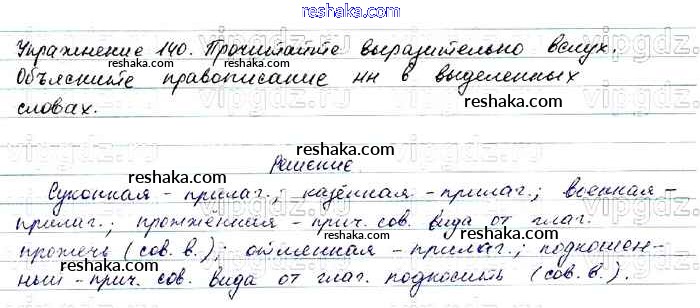 reshaka.com
Упражнение 140. Прочитайте выразительно вслух.
reshaka.com
Объясните правописание нн в выделенных
reshaka.com
словах.
reshaka.com
Решение.
reshaka.com
Суконная - прилаг.; казённая - прилаг.; военная -
reshaka.com
прилаг.; прожжённая - прич. сов. вида от глаг.
reshaka.com
прожечь (сов. в.); оттленная - прилаг.; подкошен-
reshaka.com
ный - прич. сов. вида от глаг. подкосить (сов. в.).
reshaka.com